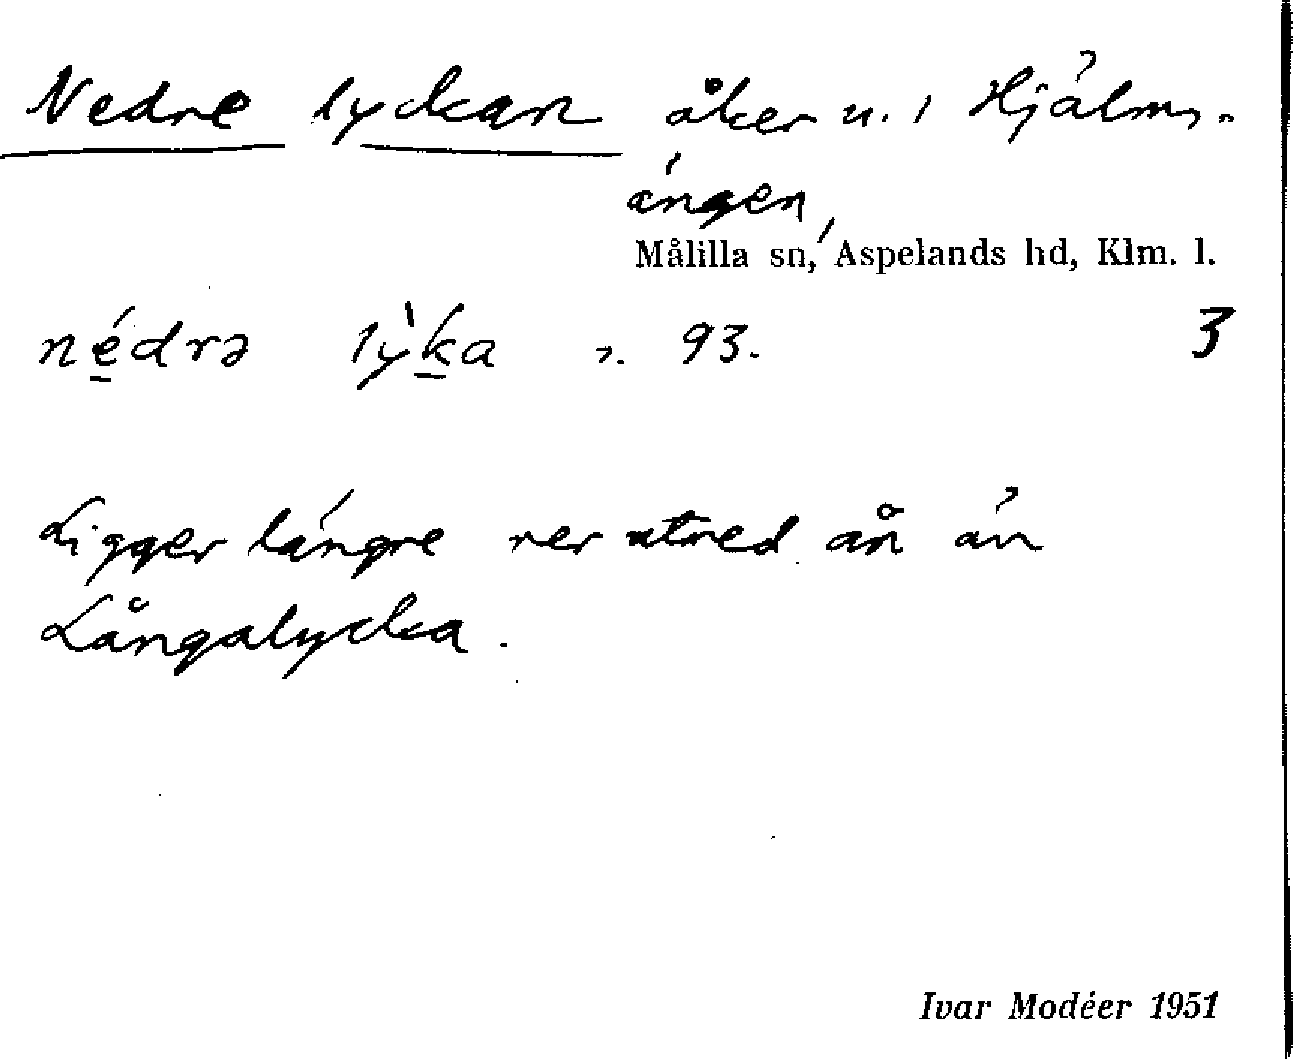 Nedre lyckan åker u. Hjälms-
ängen,
Målilla sn, Aspelands hd, Klm. l.
nédrə lỳka 93. 3
Ligger längre ner utmed ån än
Långalycka.
Ivar Modéer 1951